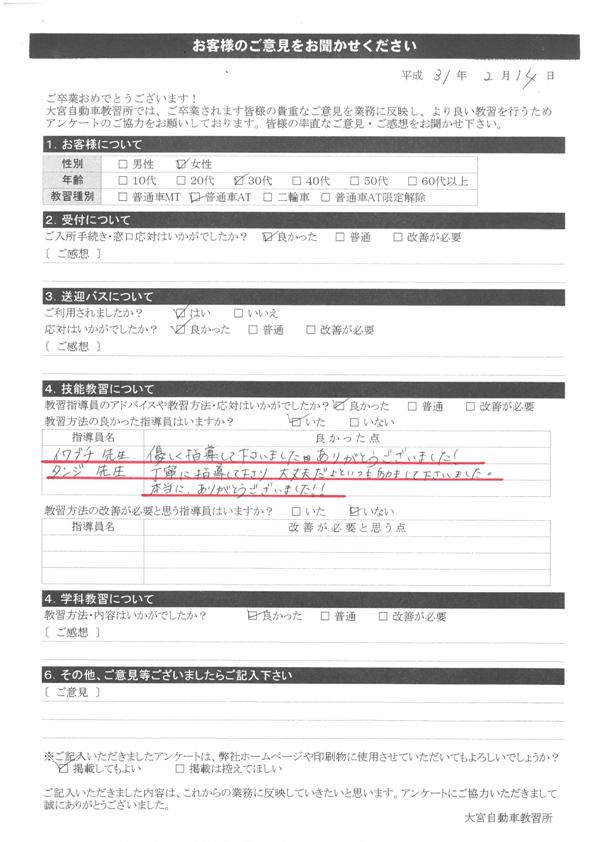 お客様のご意見をお聞かせください
平成 31年 2月14日
ご卒業おめでとうございます！
大宮自動車教習所では、ご卒業されます皆様の貴重なご意見を業務に反映し、より良い教習を行うため
アンケートのご協力をお願いしております。皆様の率直なご意見・ご感想をお聞かせ下さい。
1. お客様について
性別 □ 男性 ☑ 女性
年齢 □ 10代 □ 20代 ☑ 30代 □ 40代 □ 50代 □ 60代以上
教習種別 □ 普通車MT ☑ 普通車AT □ 二輪車 □ 普通車AT限定解除
2. 受付について
ご入所手続き・窓口応対はいかがでしたか？ ☑ 良かった □ 普通 □ 改善が必要
〔 ご感想 〕
3. 送迎バスについて
ご利用されましたか？ ☑ はい □ いいえ
応対はいかがでしたか？ ☑ 良かった □ 普通 □ 改善が必要
〔 ご感想 〕
4. 技能教習について
教習指導員のアドバイスや教習方法・応対はいかがでしたか？ ☑ 良かった □ 普通 □ 改善が必要
教習方法の良かった指導員はいますか？ ☑ いた □ いない
指導員名 良かった点
イワブチ 先生 優しく指導して下さいました。ありがとうございました！
タンジ 先生 丁寧に指導して下さり 大丈夫だよといつも励まして下さいました。
本当に、ありがとうございました！！
教習方法の改善が必要と思う指導員はいますか？ □ いた ☑ いない
指導員名 改善が必要と思う点
4. 学科教習について
教習方法・内容はいかがでしたか？ ☑ 良かった □ 普通 □ 改善が必要
〔 ご感想 〕
6. その他、ご意見等ございましたらご記入下さい
〔 ご意見 〕
※ご記入いただきましたアンケートは、弊社ホームページや印刷物に使用させていただいてもよろしいでしょうか？
☑ 掲載してもよい □ 掲載は控えてほしい
ご記入いただきました内容は、これからの業務に反映していきたいと思います。アンケートにご協力いただきまして
誠にありがとうございました。
大宮自動車教習所